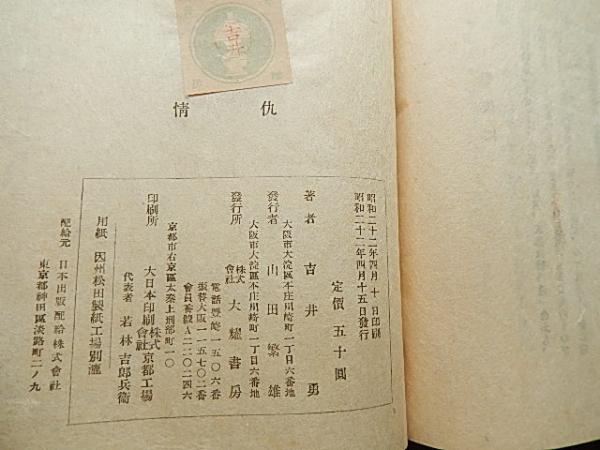 吉井
仇情
昭和二十二年四月十日印刷
昭和二十二年四月十五日發行
定價五十圓
著者 吉井勇
大阪市大淀區本庄川崎町一丁目六番地
發行者 山田繁雄
大阪市大淀區本庄川崎町一丁目六番地
發行所 株式會社 大耀書房
電話豐崎一五〇六番
振替大阪一一五七〇二番
會員番號A二二〇二四六
京都市右京區太秦上刑部町一〇
印刷所 大日本印刷株式會社京都工場
代表者 若林吉郎兵衛
用紙 因州松田製紙工場別漉
配給元 日本出版配給株式會社
東京都神田區淡路町二ノ九